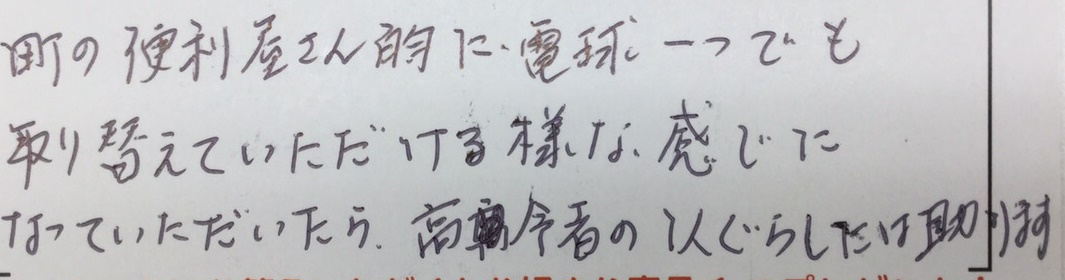 町の便利屋さん的に、電球一つでも
取り替えていただける様な、感じに
なっていただいたら、高齢者の1人ぐらしには助ります